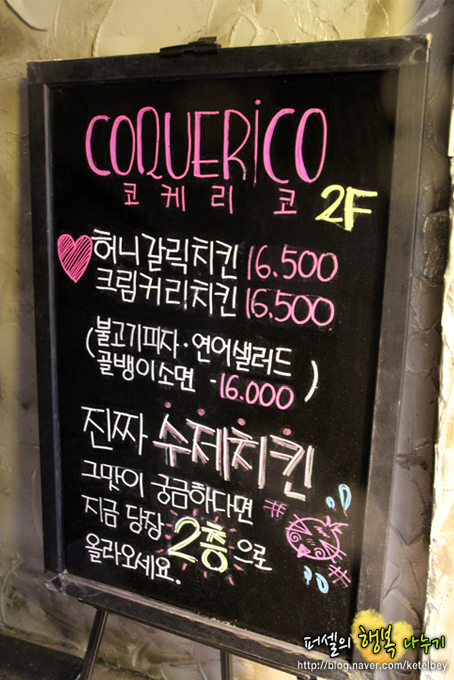 COQUERiCO
코케리코 2F
허니갈릭치킨 16.500
크림커리치킨 16.500
(불고기피자·연어샐러드
골뱅이소면 -16.000)
진짜 수제치킨
그맛이 궁금하다면
지금 당장 2층으로
올라오세요.
퍼셀의 행복 나누기
http://blog.naver.com/ketelbey